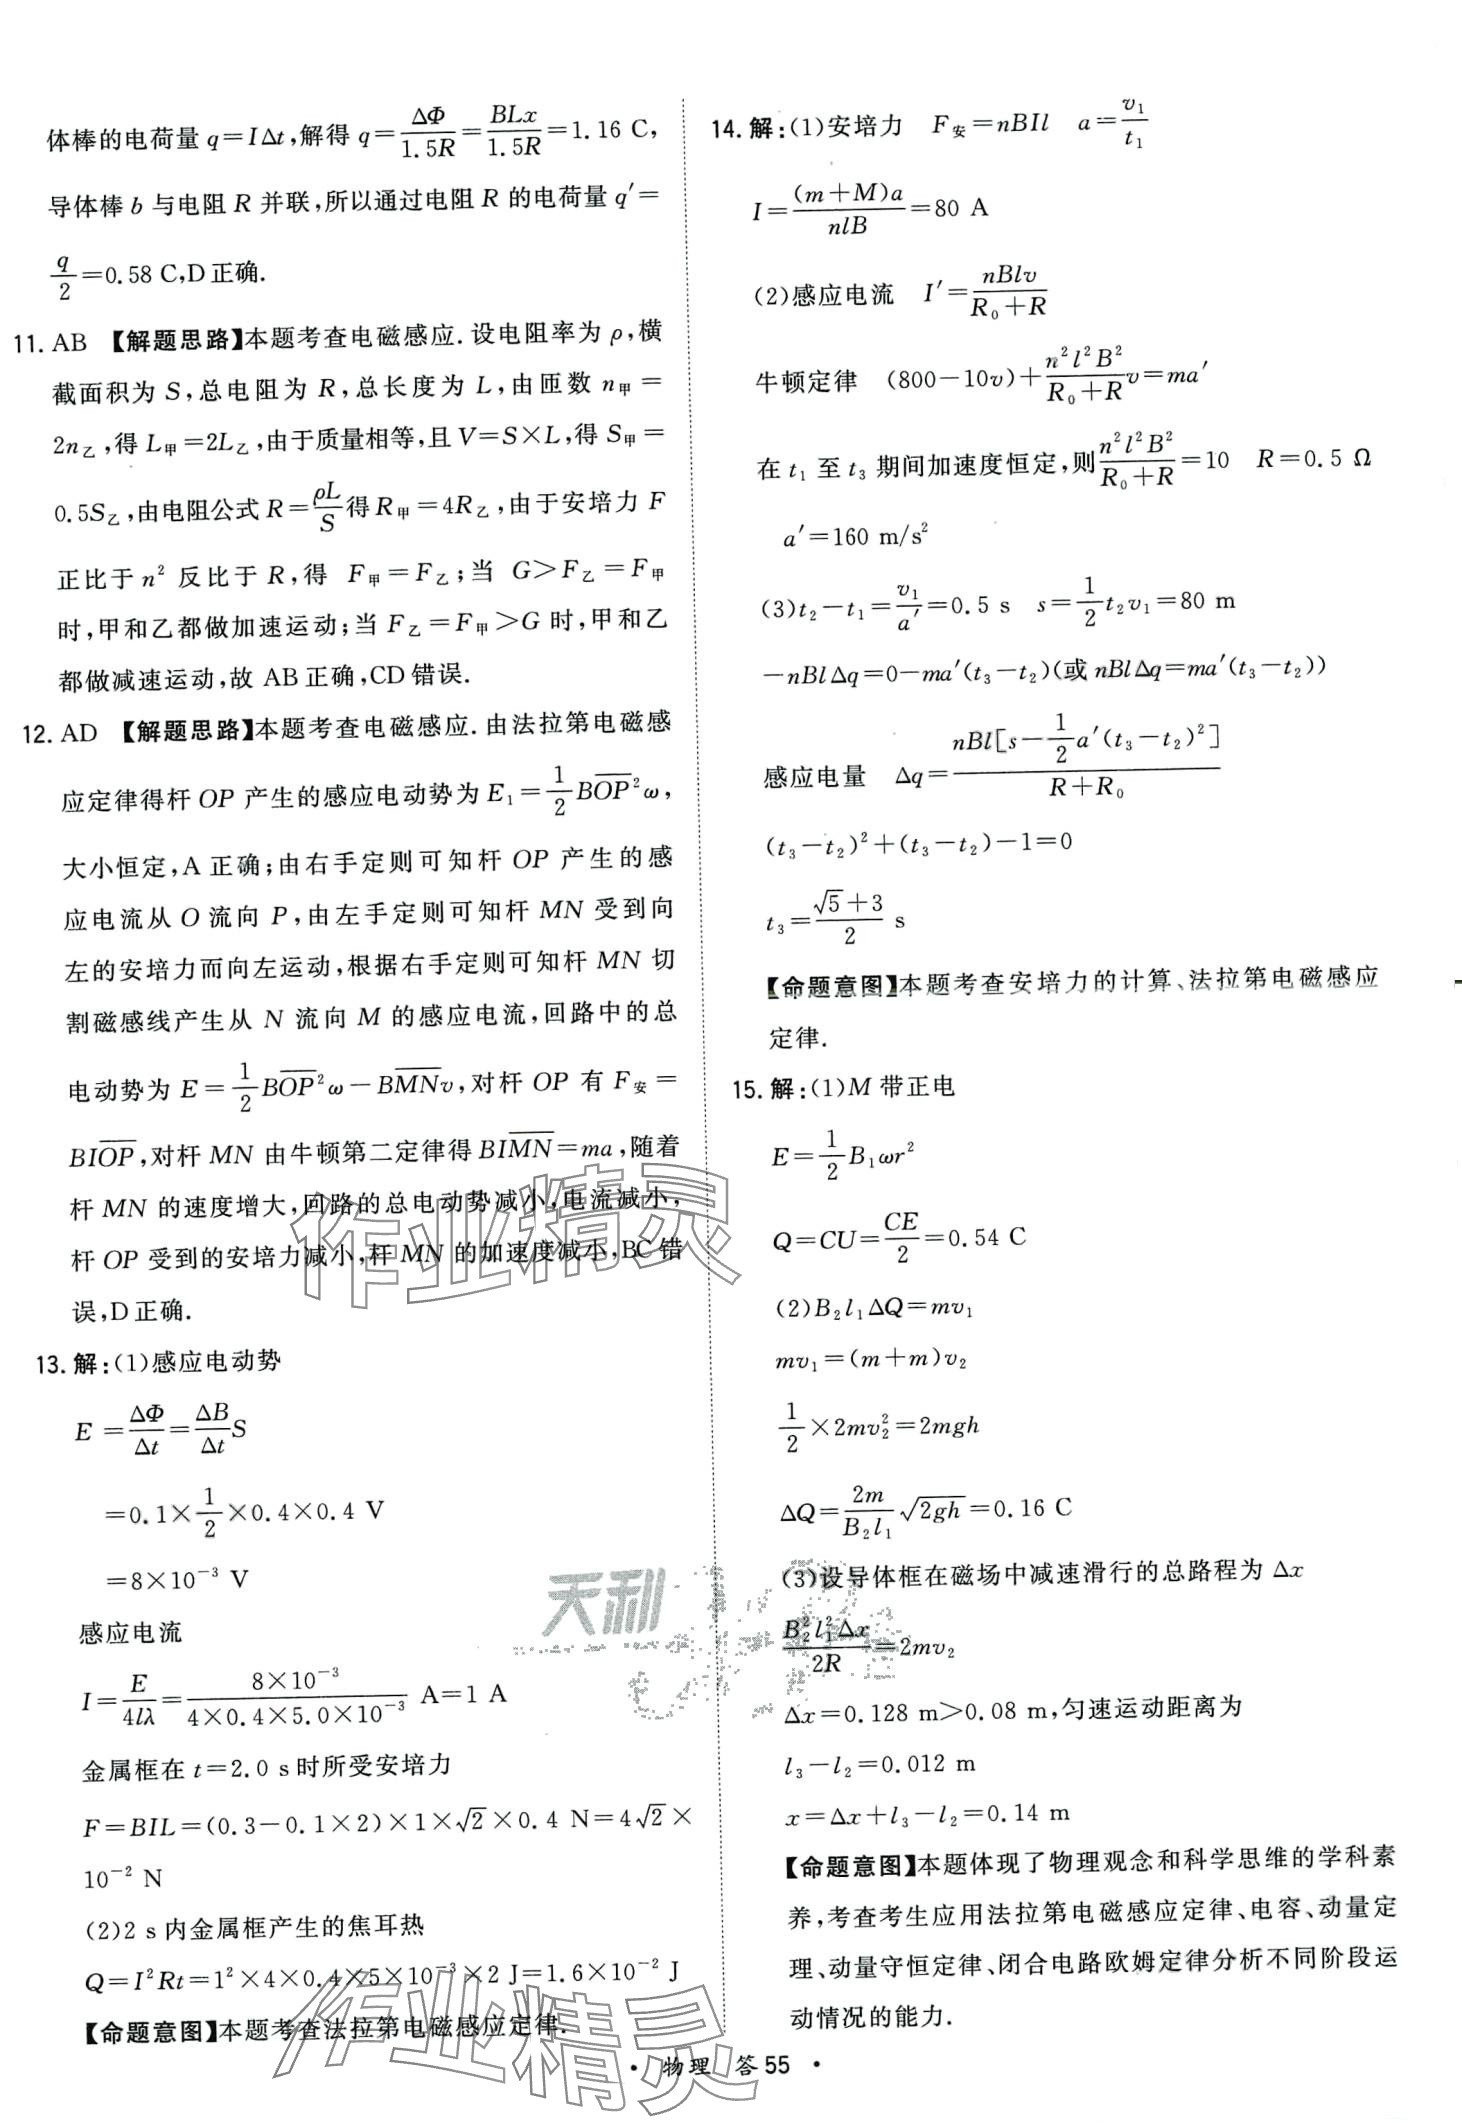 体棒的电荷量 q=IΔt,解得 q=ΔΦ/1.5R=BLx/1.5R=1.16 C,
导体棒 b 与电阻 R 并联,所以通过电阻 R 的电荷量 q′=
q/2=0.58 C,D正确.
11. AB 【解题思路】本题考查电磁感应.设电阻率为 ρ,横
截面积为 S,总电阻为 R,总长度为 L,由匝数 n甲=
2n乙,得 L甲=2L乙,由于质量相等,且 V=S×L,得 S甲=
0.5S乙,由电阻公式 R=ρL/S得 R甲=4R乙,由于安培力 F
正比于 n² 反比于 R,得 F甲=F乙;当 G>F乙=F甲
时,甲和乙都做加速运动;当 F乙=F甲>G 时,甲和乙
都做减速运动,故 AB正确,CD错误.
12. AD 【解题思路】本题考查电磁感应.由法拉第电磁感
应定律得杆 OP 产生的感应电动势为 E₁=1/2 B\overline{OP}²ω,
大小恒定,A正确;由右手定则可知杆 OP 产生的感
应电流从 O 流向 P,由左手定则可知杆 MN 受到向
左的安培力而向左运动,根据右手定则可知杆 MN 切
割磁感线产生从 N 流向 M 的感应电流,回路中的总
电动势为 E=1/2 B\overline{OP}²ω−B\overline{MN}v,对杆 OP 有 F安=
BI\overline{OP},对杆 MN 由牛顿第二定律得 BI\overline{MN}=ma,随着
杆 MN 的速度增大,回路的总电动势减小,电流减小,
杆 OP 受到的安培力减小,杆 MN 的加速度减小,BC错
误,D正确.
13. 解:(1)感应电动势
E=ΔΦ/Δt=ΔB/Δt S
=0.1×1/2×0.4×0.4 V
=8×10⁻³ V
感应电流
I=E/4lλ=8×10⁻³/4×0.4×5.0×10⁻³ A=1 A
金属框在 t=2.0 s时所受安培力
F=BIL=(0.3−0.1×2)×1×√2×0.4 N=4√2×
10⁻² N
(2)2 s内金属框产生的焦耳热
Q=I²Rt=1²×4×0.4×5×10⁻³×2 J=1.6×10⁻² J
【命题意图】本题考查法拉第电磁感应定律.
14. 解:(1)安培力 F安=nBIl a=v₁/t₁
I=(m+M)a/nlB=80 A
(2)感应电流 I′=nBlv/R₀+R
牛顿定律 (800−10v)+n²l²B²/R₀+R v=ma′
在 t₁ 至 t₃ 期间加速度恒定,则n²l²B²/R₀+R=10 R=0.5 Ω
a′=160 m/s²
(3)t₂−t₁=v₁/a′=0.5 s s=1/2 t₂v₁=80 m
−nBlΔq=0−ma′(t₃−t₂)(或 nBlΔq=ma′(t₃−t₂))
感应电量 Δq=nBl[s−1/2 a′(t₃−t₂)²]/R+R₀
(t₃−t₂)²+(t₃−t₂)−1=0
t₃=√5+3/2 s
【命题意图】本题考查安培力的计算、法拉第电磁感应
定律.
15. 解:(1)M 带正电
E=1/2 B₁ωr²
Q=CU=CE/2=0.54 C
(2)B₂l₁ΔQ=mv₁
mv₁=(m+m)v₂
1/2×2mv₂²=2mgh
ΔQ=2m/B₂l₁ √2gh=0.16 C
(3)设导体框在磁场中减速滑行的总路程为 Δx
B₂²l₁²Δx/2R=2mv₂
Δx=0.128 m>0.08 m,匀速运动距离为
l₃−l₂=0.012 m
x=Δx+l₃−l₂=0.14 m
【命题意图】本题体现了物理观念和科学思维的学科素
养,考查考生应用法拉第电磁感应定律、电容、动量定
理、动量守恒定律、闭合电路欧姆定律分析不同阶段运
动情况的能力.
作业精灵
天利
作业精灵
· 物理 答55 ·